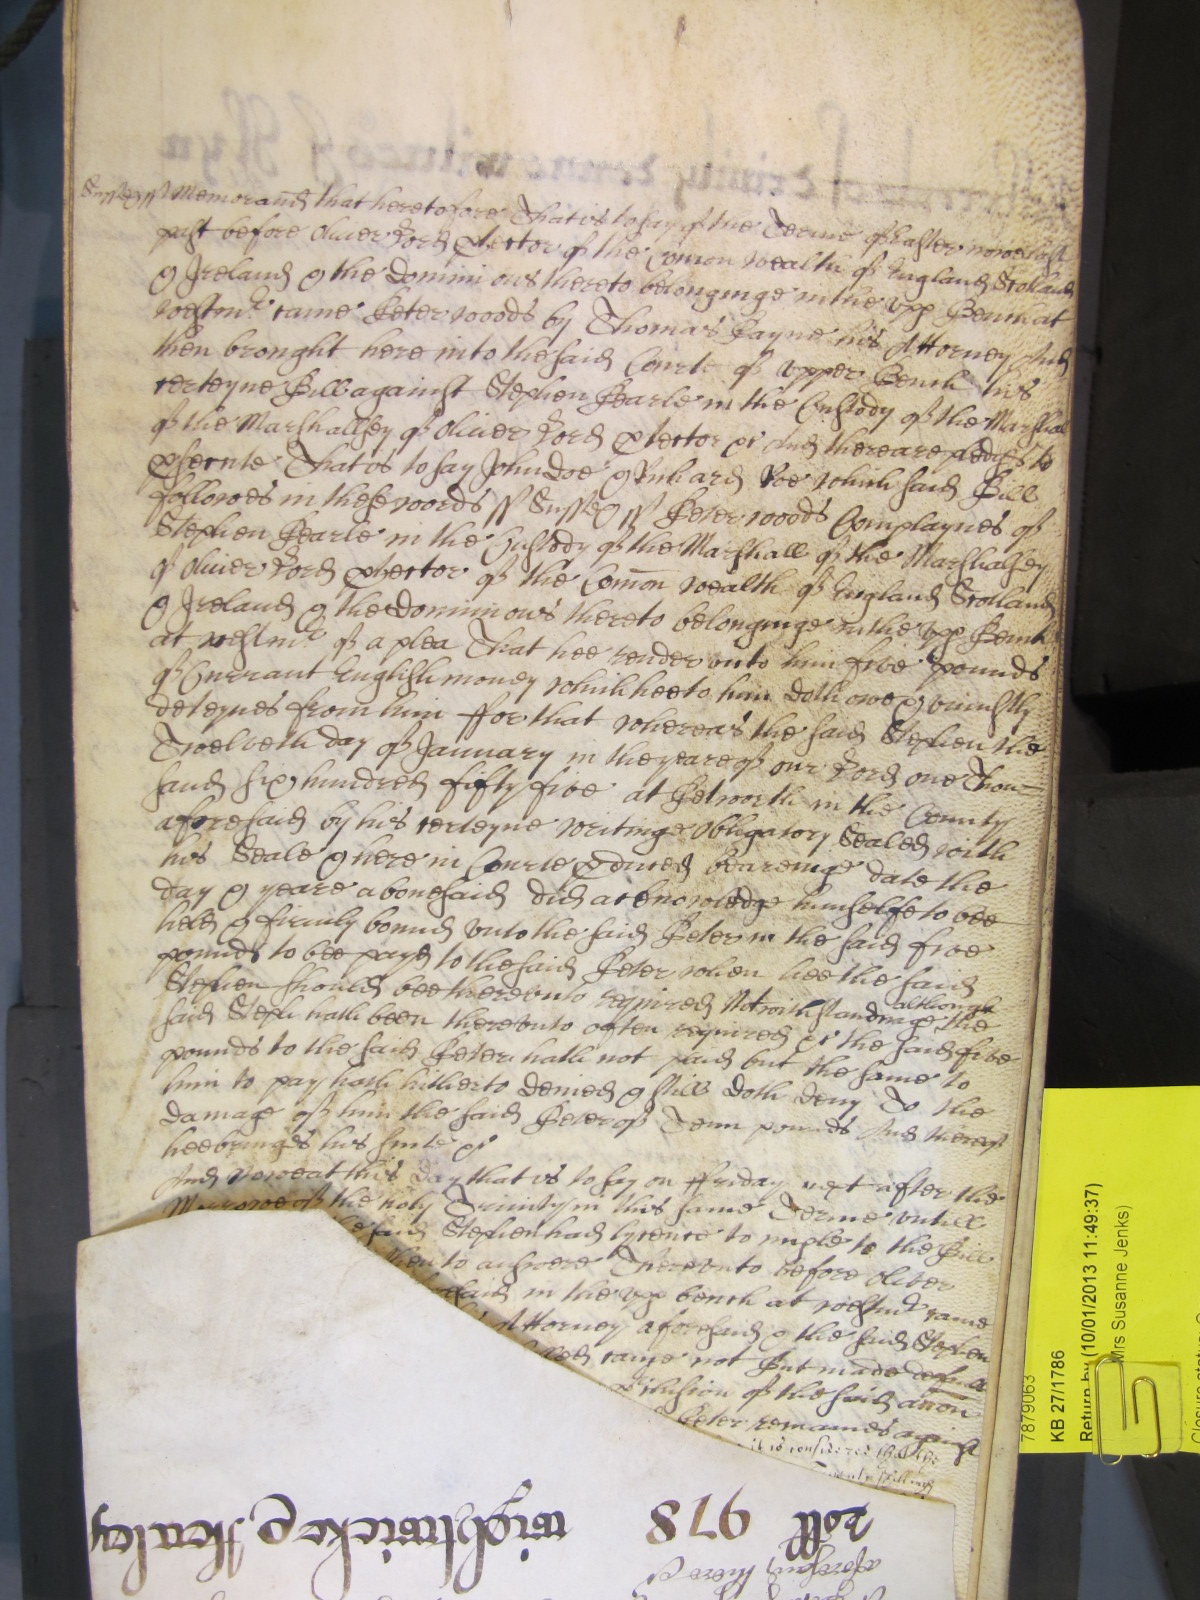 Sussex ss Memorand that heretofore That is to say of the Terme of Easter nowe last
past before Oliver Lord ptector of the Comon wealth of England Scotland
& Ireland & the Dominions thereto belonginge in the vpp Bench at
westmr came Peter woods by Thomas Payne his Attorney And
then brought here into the said Courte of vpper Bench his
certeyne Bill against Stephen Pearle in the Custody of the Marshal
of the Marshallsey of Oliver Lord ptector &c And there are pledges to
psecute That is to say John Doe & Richard Roe which said Bill
followes in these words ss Sussex ss Peter woods Complaynes of
Stephen Pearle in the Custody of the Marshall of the Marshalsey
of Oliver Lord ptector of the Comon wealth of England Scotland
& Ireland & the Dominions thereto belonginge in the vpp Bench
at westmr of a plea That hee render vnto him five pounds
of Currant English money which hee to him doth owe & viniustly
deteynes from him ffor that whereas the said Stephen the
Twelveth day of January in the yeare of our Lord one Thou=
sand six hundred fifty five at Petworth in the County
aforesaid by his certeyne writinge Obligatory Sealed with
his Seale & here in Courte pduced beareinge date the
day & yeare abovesaid did acknowledge himselfe to bee
held & firmly bound vnto the said Peter in the said five
pounds to bee payd to the said Peter when hee the said
Stephen should bee therevnto required Notwithstandinge although the
said Steph hath been therevnto often required &c the said five
pounds to the said Peter hath not paid but the same to
him to pay hath hitherto denied & still doth deny To the
damage of him the said Peter of Tenn pounds And thereof
hee bringes his suite &c
And nowe at this day that is to say on ffriday next after the
Morrowe of the holy Trinity in this same Terme vntill
the said Stephen had lycence to imple to the Bill
then to answere Therevnto before Oliver
said in the vpp bench at westmr came
Attorney aforesaid & the said Stephen
came not But made default
of the said accon
Peter remaines against
it is considered that the
roll 978 wightwicke & Healey
aforesaid here &c
7879063
KB 27/1786
Return by (10/01/2013 11:49:37)
Mrs Susanne Jenks)